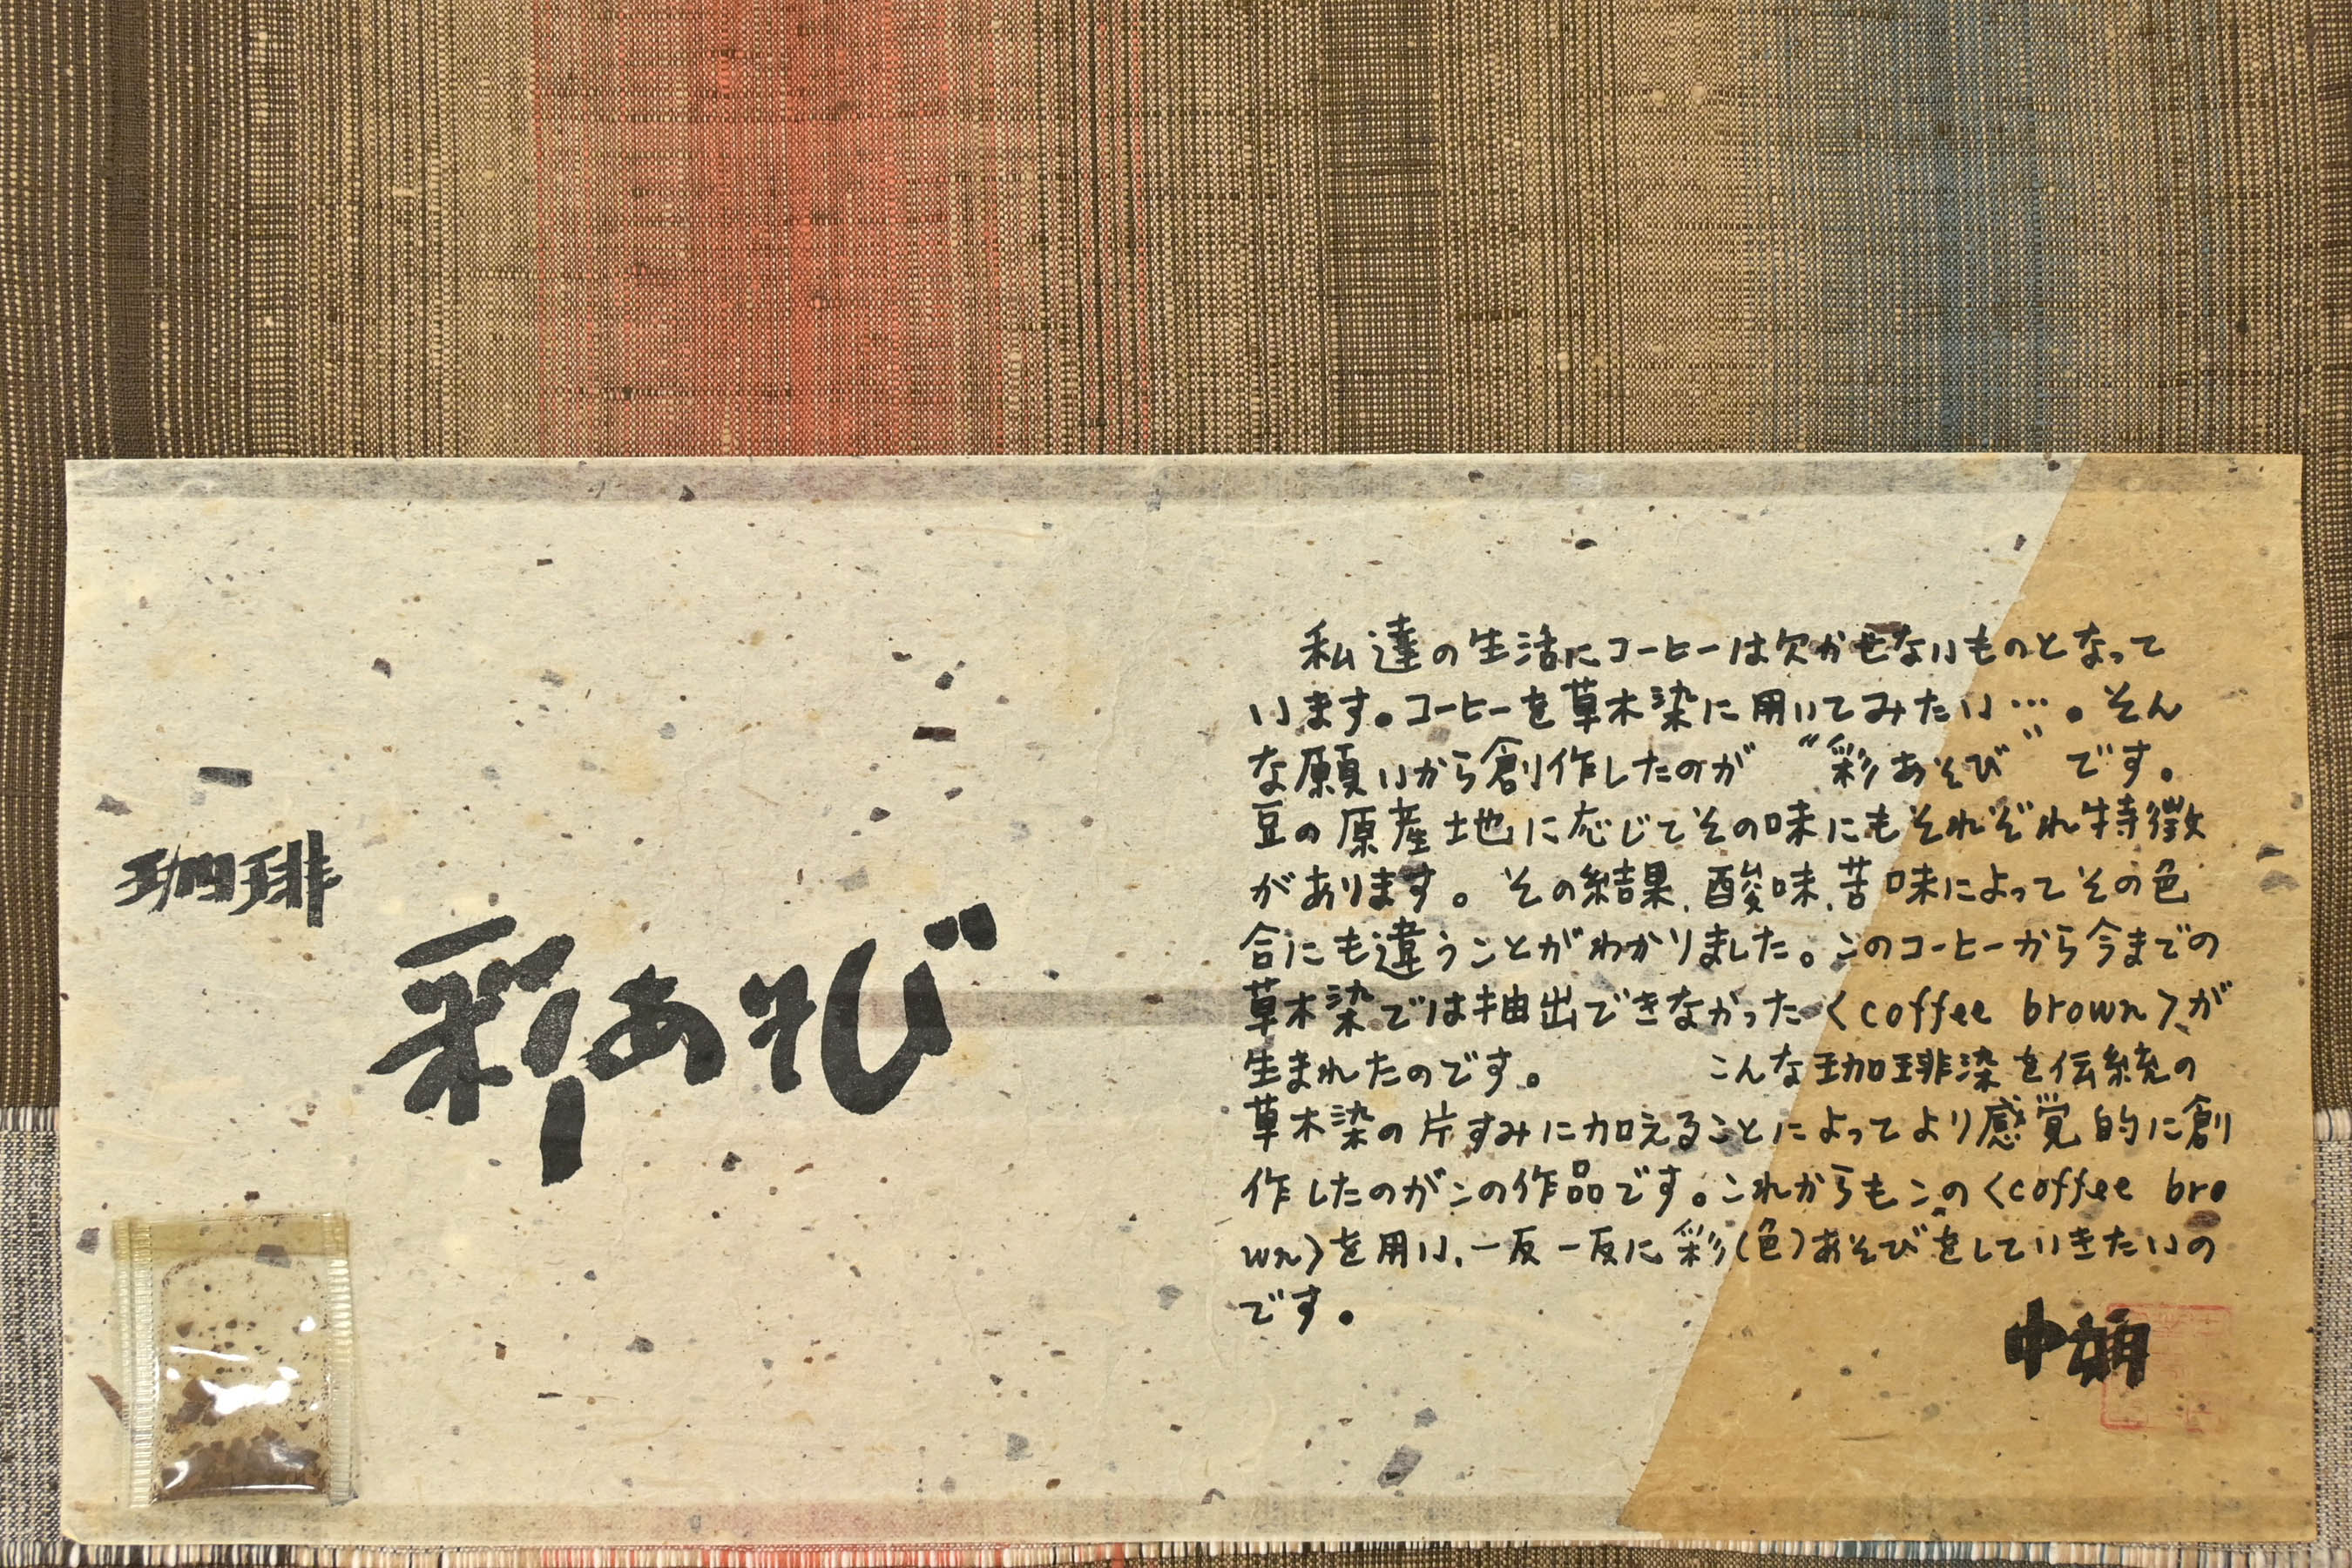 珈琲
彩あそび
私達の生活にコーヒーは欠かせないものとなって
います。コーヒーを草木染に用いてみたい…。そん
な願いから創作したのが〝彩あそび〟です。
豆の原産地に応じてその味にもそれぞれ特徴
があります。その結果、酸味、苦味によってその色
合にも違うことがわかりました。このコーヒーから今までの
草木染では抽出できなかった〈coffee brown〉が
生まれたのです。 こんな珈琲染を伝統の
草木染の片すみに加えることによってより感覚的に創
作したのがこの作品です。これからもこの〈coffee bro
wn〉を用い、一反一反に彩(色)あそびをしていきたいの
です。